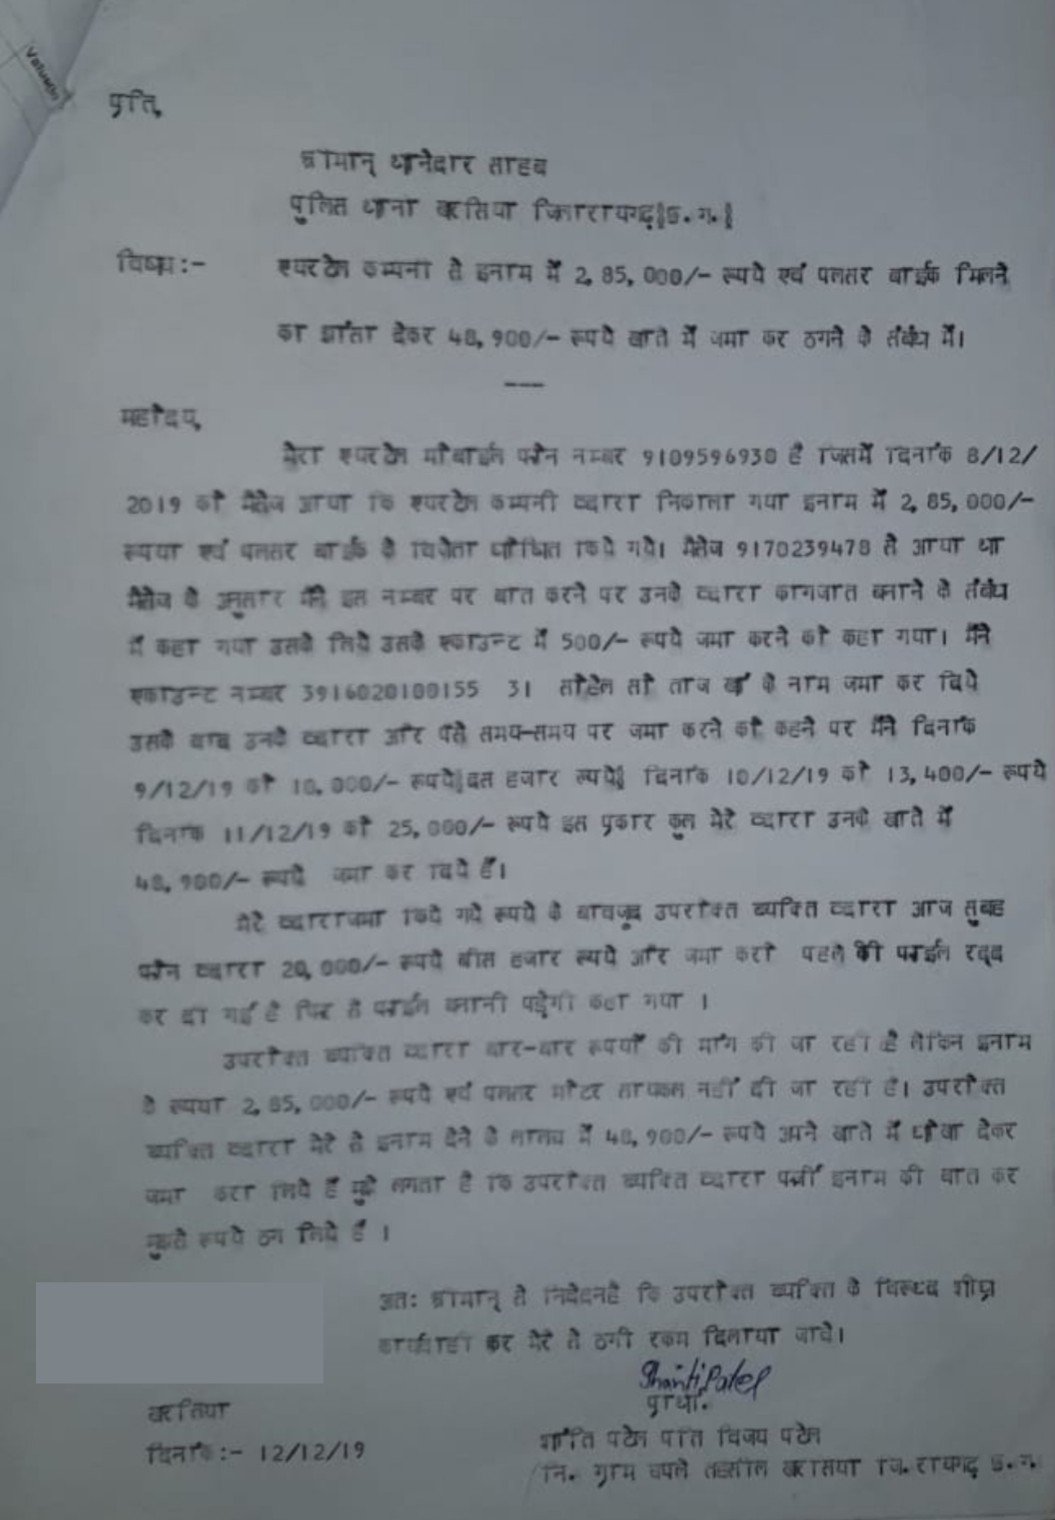 Valuatio
प्रति,
श्रीमान् थानेदार साहब
पुलिस थाना खरसिया जिलारायगढ़|छ.ग.|
विषय:- एयरटेल कम्पनी से इनाम में 2,85,000/- रूपये एवं पलसर बाईक मिलने
का झांसा देकर 48,900/- रूपये खाते में जमा कर ठगने के संबंध में।
---
महोदय,
मेरा एयरटेल मोबाईल फोन नम्बर 9109596930 है जिसमें दिनांक 8/12/
2019 को मैसेज आया कि एयरटेल कम्पनी व्दारा निकाला गया इनाम में 2,85,000/-
रूपया एवं पलसर बाईक के विजेता घोषित किये गये। मैसेज 9170239478 से आया था
मैसेज के अनुसार मैंने इस नम्बर पर बात करने पर उनके व्दारा कागजात बनाने के संबंध
में कहा गया उसके लिये उसके एकाउन्ट में 500/- रूपये जमा करने को कहा गया। मैंने
एकाउन्ट नम्बर 3916020100155 31 सोहेल सी ताज खां के नाम जमा कर दिये
उसके बाद उनके व्दारा और पैसे समय-समय पर जमा करने को कहने पर मैंने दिनांक
9/12/19 को 10,000/- रूपये|दस हजार रूपये| दिनांक 10/12/19 को 13,400/- रूपये
दिनांक 11/12/19 को 25,000/- रूपये इस प्रकार कुल मेरे व्दारा उनके खाते में
48,900/- रूपये जमा कर दिये हैं।
मेरे व्दाराजमा किये गये रूपये के बावजूद उपरोक्त व्यक्ति व्दारा आज सुबह
फोन व्दारा 20,000/- रूपये बीस हजार रूपये और जमा करो पहले की फाईल रद्द
कर दी गई है फिर से फाईल बनानी पड़ेगी कहा गया ।
उपरोक्त व्यक्ति व्दारा बार-बार रूपयों की मांग की जा रही है लेकिन इनाम
के रूपया 2,85,000/- रूपये एवं पलसर मोटर सायकल नहीं दी जा रही है। उपरोक्त
व्यक्ति व्दारा मेरे से इनाम देने के लालच में 48,900/- रूपये अपने खाते में धोखा देकर
जमा करा लिये हैं मुझे लगता है कि उपरोक्त व्यक्ति व्दारा फर्जी इनाम की बात कर
मुझसे रूपये ठग लिये हैं ।
अतः श्रीमान् से निवेदनहै कि उपरोक्त व्यक्ति के विरूध्द शीघ्र
कार्यवाही कर मेरे से ठगी रकम दिलाया जावे।
Shanti Patel
खरसिया
प्रार्थी.
दिनांक:- 12/12/19
शांति पटेल पति विजय पटेल
नि. ग्राम बपले तहसील खरसिया जि.रायगढ़ छ.ग.